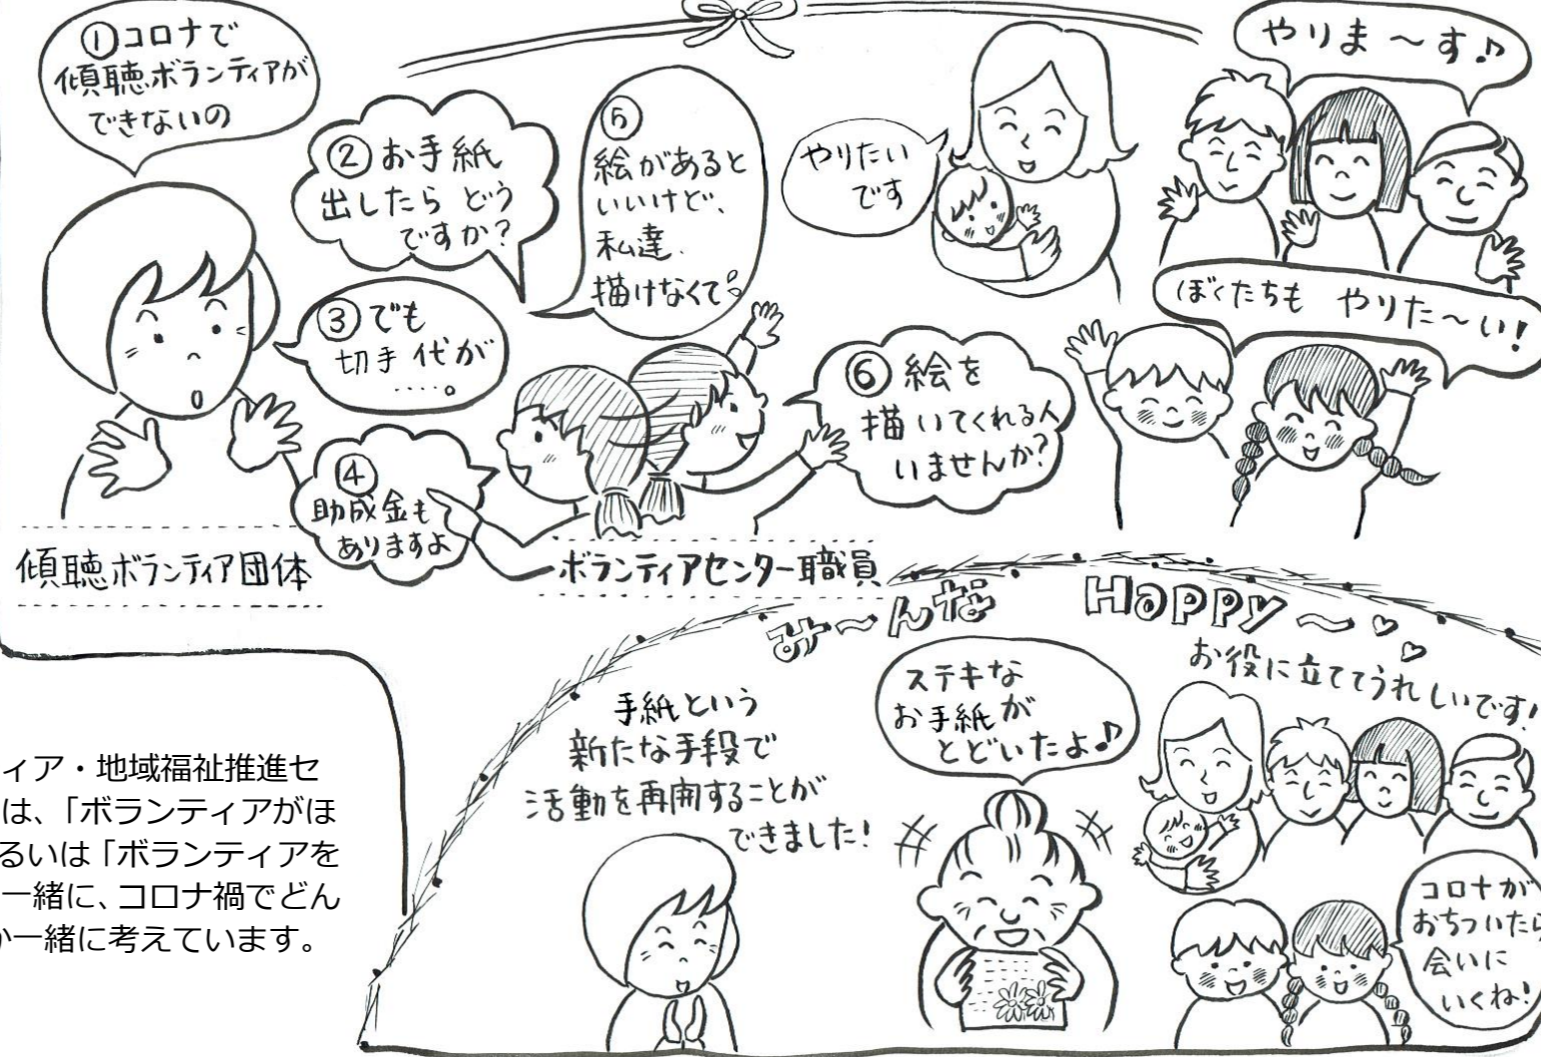 ①コロナで
傾聴ボランティアが
できないの
②お手紙
出したら どう
ですか?
③でも
切手代が
……。
④
助成金も
ありますよ
⑤
絵があると
いいけど、
私達、
描けなくて
⑥絵を
描いてくれる人
いませんか?
やりたい
です
やりま〜す♪
ぼくたちも やりた〜い!
傾聴ボランティア団体
ボランティアセンター職員
み〜んな Happy〜♡♡
お役に立ててうれしいです!
手紙という
新たな手段で
活動を再開することが
できました!
ステキな
お手紙が
とどいたよ♪
コロナが
おちついたら
会いに
いくね!
ィア・地域福祉推進セ
は、「ボランティアがほ
るいは「ボランティアを
一緒に、コロナ禍でどん
か一緒に考えています。